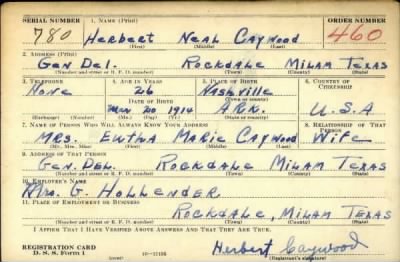 SERIAL NUMBER 1. NAME (Print) ORDER NUMBER
780 Herbert Neal Caywood 460
(First) (Middle) (Last)
2. ADDRESS (Print)
Gen Del. Rockdale Milam Texas
(Number and street or R. F. D. number) (Town) (County) (State)
3. TELEPHONE 4. AGE IN YEARS 5. PLACE OF BIRTH 6. COUNTRY OF CITIZENSHIP
None 26 Nashville
DATE OF BIRTH (Town or county)
May 20 1914 Ark. U.S.A
(Exchange) (Number) (Mo.) (Day) (Yr.) (State or country)
7. NAME OF PERSON WHO WILL ALWAYS KNOW YOUR ADDRESS 8. RELATIONSHIP OF THAT PERSON
Mrs. Marie Caywood Wife
(Mr., Mrs., Miss) (First) (Middle) (Last)
9. ADDRESS OF THAT PERSON
Gen. Del. Rockdale Milam Texas
(Number and street or R. F. D. number) (Town) (County) (State)
10. EMPLOYER'S NAME
G. Hollender
11. PLACE OF EMPLOYMENT OR BUSINESS
Rockdale, Milam Texas
(Number and street or R. F. D. number) (Town) (County) (State)
I AFFIRM THAT I HAVE VERIFIED ABOVE ANSWERS AND THAT THEY ARE TRUE.
REGISTRATION CARD Herbert Caywood
D. S. S. Form 1 (Registrant's signature)